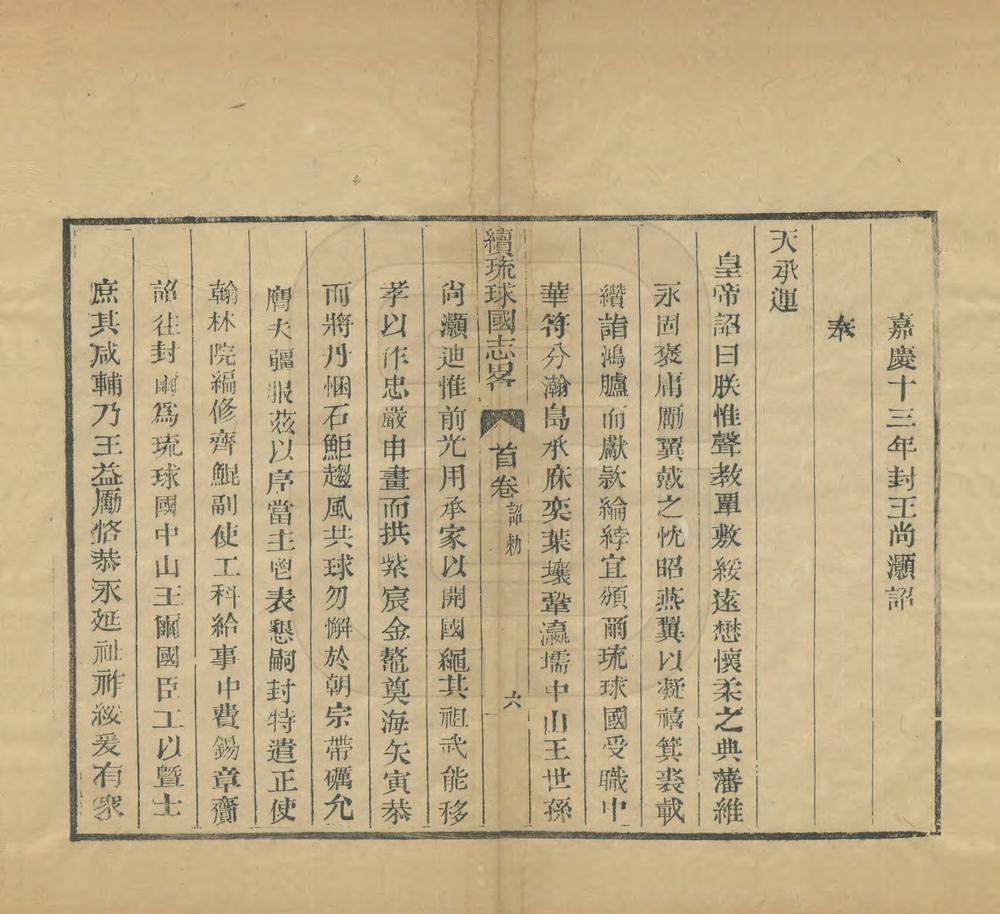 嘉慶十三年封王尚灝詔
奉
天承運
皇帝詔曰朕惟聲教覃敷綏遠懋懷柔之典藩維
永固褒庸勵翼戴之忱昭燕翼以凝禧箕裘載
纘詣鴻臚而獻款綸綍宜頒爾琉球國受職中
華符分瀚島承庥奕葉壤鞏瀛壖中山王世孫
續琉球國志畧
首卷
詔勅
六
尚灝迪惟前光用承家以開國繩其祖武能移
孝以作忠嚴申畫而拱紫宸金鼇奠海矢寅恭
而將丹悃石鮔趨風共球勿懈於朝宗帶礪允
膺夫疆服茲以序當主鬯表懇嗣封特遣正使
翰林院編修齊鯤副使工科給事中費錫章齎
詔往封爾爲琉球國中山王爾國臣工以曁士
庶其咸輔乃王益勵恪恭永延祉祚綏爰有衆